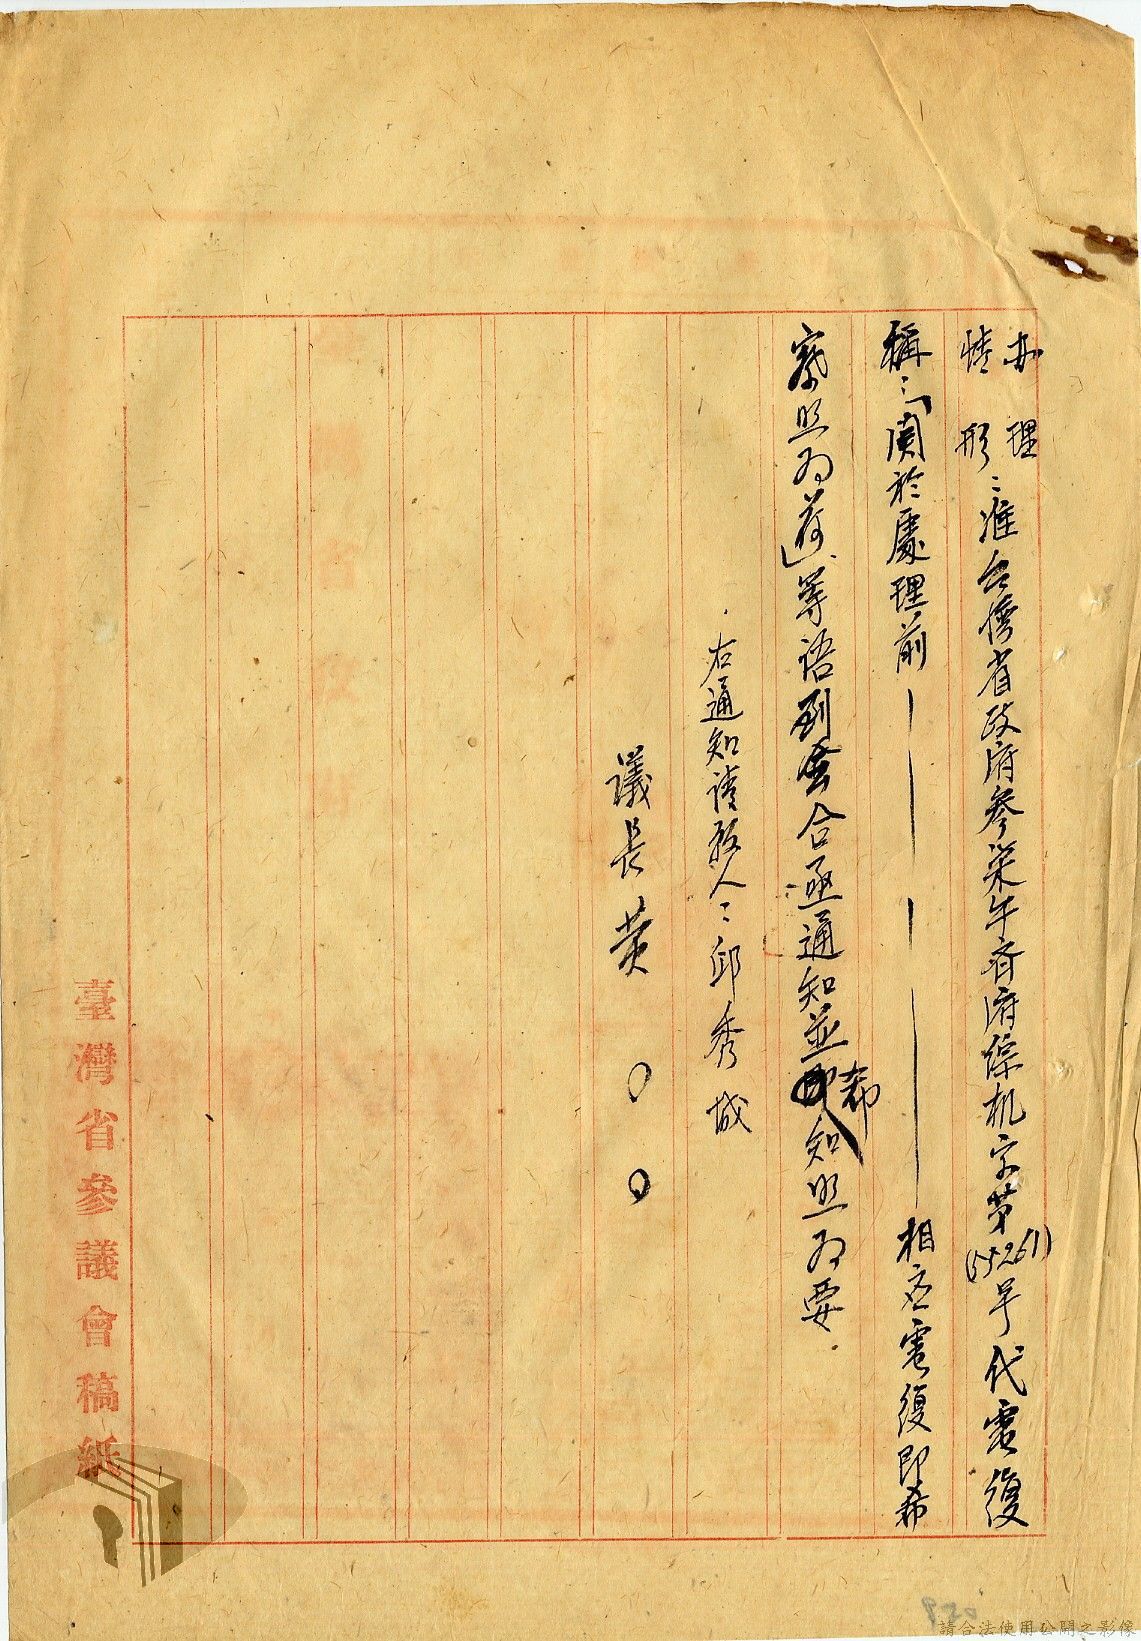 办理
情形：准台灣省政府參柒午府綜机字第(55261)号代電復
稱：「関於處理前————相应電復即希
察照为荷」等语到會合函通知並希知照为要.
右通知請願人：邱秀城
議長黄〇〇
臺灣省參議會稿紙
請合法使用公開之影像